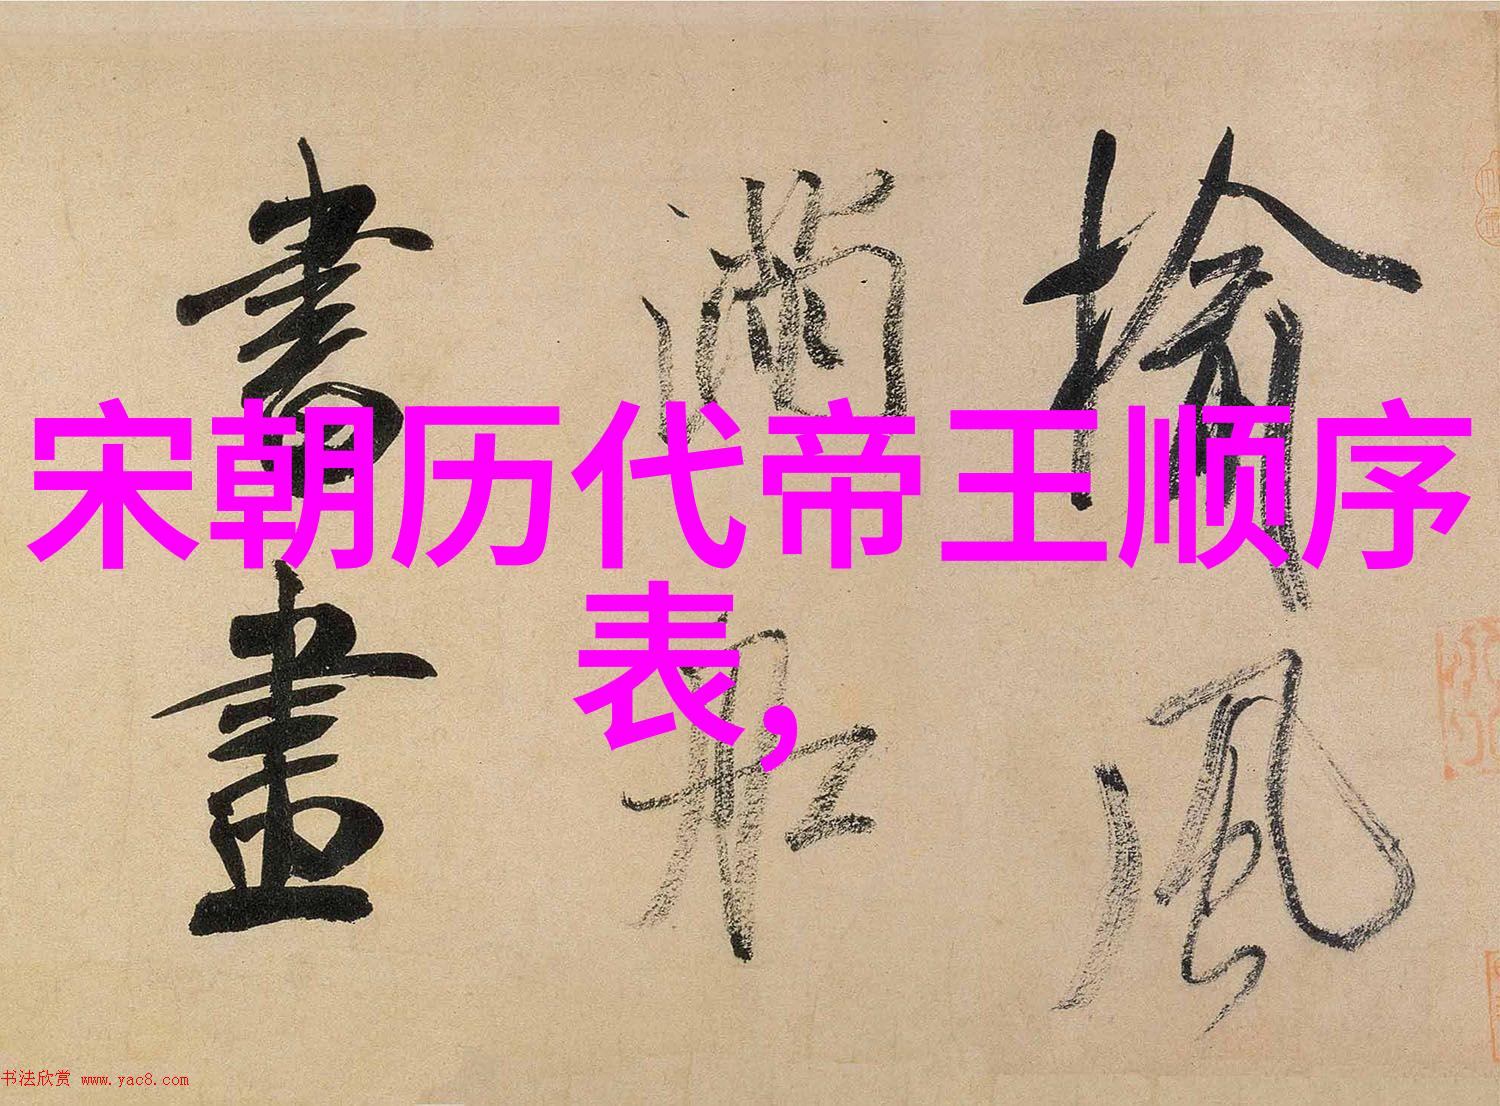 宋朝历代帝王顺序
表,
揄風
滿船
書畫
书法欣赏 www.yac8.com